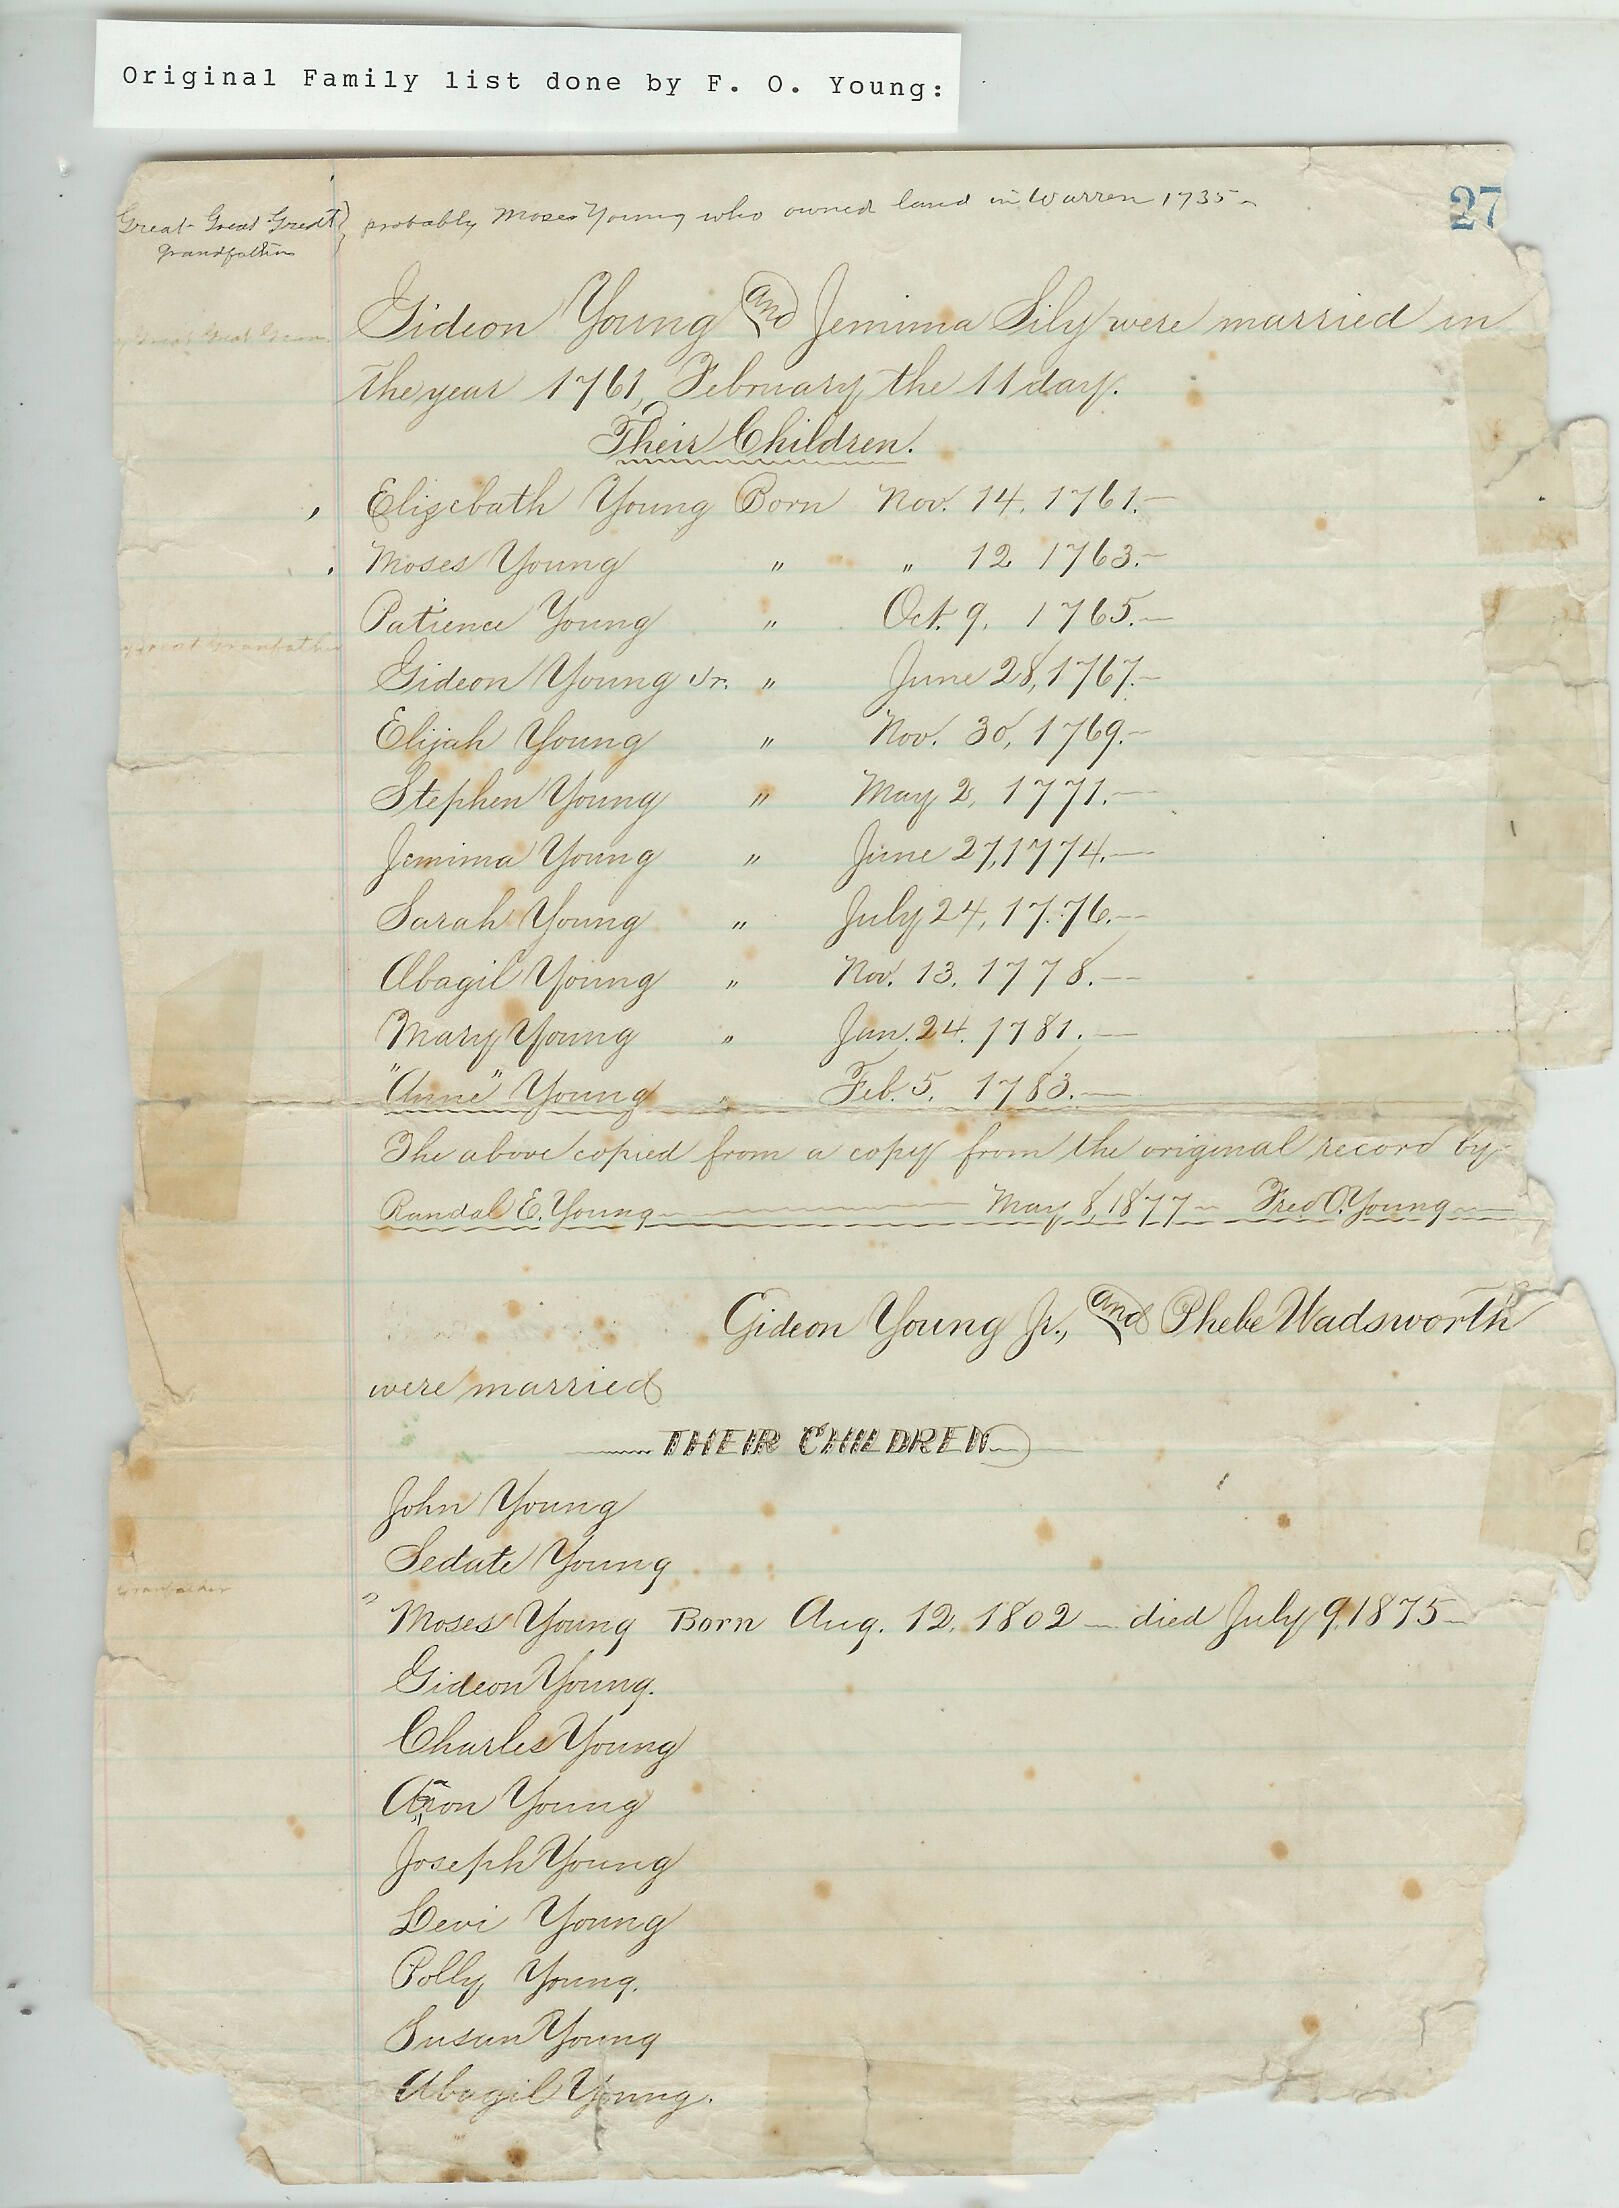 Original Family list done by F. O. Young:
27
Great- Great Great } probably Moses Young who owned land in Warren 1735-
Grandfather
Gideon Young and Jemima Lily were married in
the year 1761, February the 11 day.
Their Children.
Elizebath Young Born Nov. 14, 1761.-
Moses Young " " 12 1763.-
Patience Young " Oct. 9, 1765.-
Great Granfather
Gideon Young Jr. " June 28, 1767.-
Elijah Young " Nov. 30, 1769.-
Stephen Young " May 2, 1771.-
Jemima Young " June 27, 1774.-
Sarah Young " July 24, 1776.-
Abagil Young " Nov. 13. 1778.-
Mary Young " Jan. 24. 1781.-
"Anne" Young " Feb. 5. 1783.-
The above copied from a copy from the original record by
Randal E. Young - May 8, 1877 - Fred O. Young -
Gideon Young Jr., and Phebe Wadsworth
were married
THEIR CHILDREN
John Young
Sedate Young
Granfather
" Moses Young Born Aug. 12, 1802 - died July 9, 1875-
Gideon Young.
Charles Young
Young
Joseph Young
Levi Young
Polly Young.
Susan Young
Abagil Young.